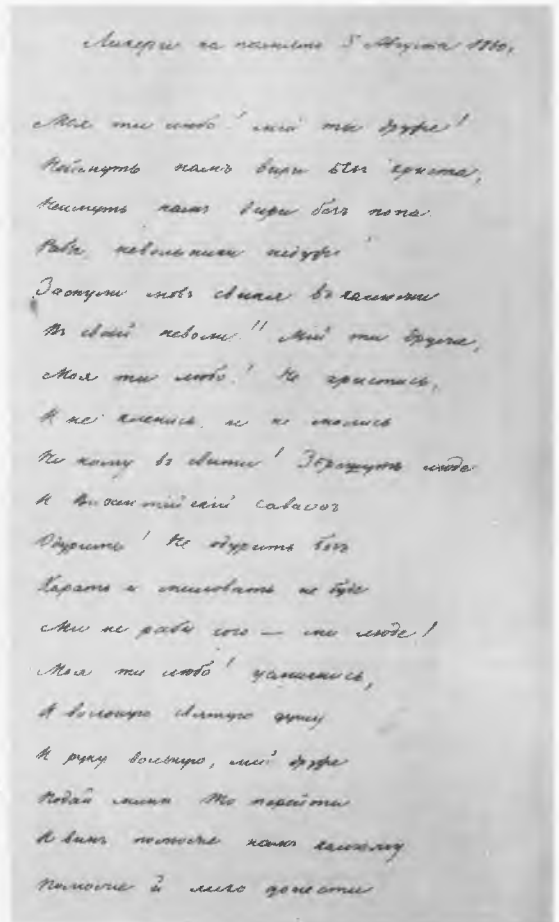 Ликери на помьять 5 Августа 1860.
Моя ти любо! мій ти друже!
Неймуть намъ вири безъ христа,
Неймуть намъ вири безъ попа
Рабы невольники недужі!
Заснули мовъ свиня въ калюжи
Въ своій неволи!! Мій ти друже,
Моя ти любо! Не христись,
И не кленись и не молись
Ни кому въ свити! Збрешуть люде
И Византійскій саваоѳъ
Одурить! Не одурить Богъ
Карать и миловать не буде
Ми не раби його — ми люде!
Моя ти любо! усмихнись,
И вольную святую душу
И руку вольную, мій друже
Подай мини То перейти
И винъ поможе намъ калюжу
Поможе й лихо донести